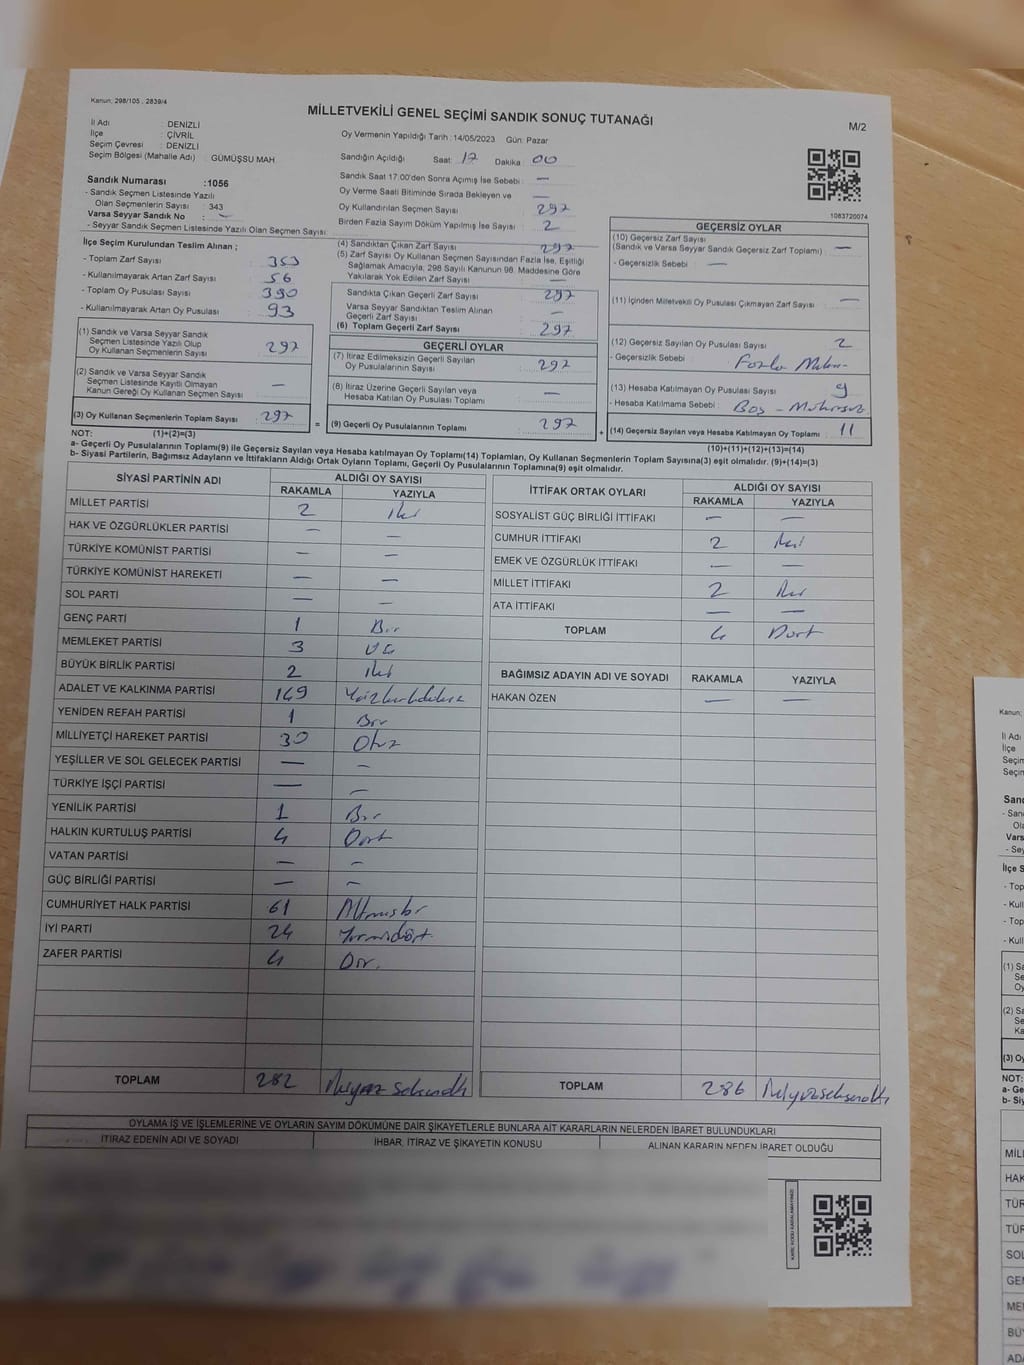 Kanun: 298/105 , 2839/4
MİLLETVEKİLİ GENEL SEÇİMİ SANDIK SONUÇ TUTANAĞI
M/2
İl Adı : DENİZLİ
İlçe : ÇİVRİL
Seçim Çevresi : DENİZLİ
Seçim Bölgesi (Mahalle Adı) GÜMÜŞSU MAH.
Sandık Numarası :1056
- Sandık Seçmen Listesinde Yazılı
Olan Seçmenlerin Sayısı : 343
Varsa Seyyar Sandık No : -
- Seyyar Sandık Seçmen Listesinde Yazılı Olan Seçmen Sayısı :
Oy Vermenin Yapıldığı Tarih : 14/05/2023 Gün: Pazar
Sandığın Açıldığı Saat: 17 Dakika : 00
Sandık Saat 17.00'den Sonra Açılmış İse Sebebi : —
Oy Verme Saati Bitiminde Sırada Bekleyen ve
Oy Kullandırılan Seçmen Sayısı : 297
Birden Fazla Sayım Döküm Yapılmış İse Sayısı : 2
1083720074
İlçe Seçim Kurulundan Teslim Alınan ;
- Toplam Zarf Sayısı : 353
- Kullanılmayarak Artan Zarf Sayısı : 56
- Toplam Oy Pusulası Sayısı : 390
- Kullanılmayarak Artan Oy Pusulası : 93
(1) Sandık ve Varsa Seyyar Sandık
Seçmen Listesinde Yazılı Olup
Oy Kullanan Seçmenlerin Sayısı : 297
(2) Sandık ve Varsa Seyyar Sandık
Seçmen Listesinde Kayıtlı Olmayan
Kanun Gereği Oy Kullanan Seçmen Sayısı : —
(3) Oy Kullanan Seçmenlerin Toplam Sayısı : 297
(4) Sandıktan Çıkan Zarf Sayısı : 297
(5) Zarf Sayısı Oy Kullanan Seçmen Sayısından Fazla İse, Eşitliği
Sağlamak Amacıyla, 298 Sayılı Kanunun 98. Maddesine Göre
Yakılarak Yok Edilen Zarf Sayısı : —
Sandıkta Çıkan Geçerli Zarf Sayısı : 297
Varsa Seyyar Sandıktan Teslim Alınan
Geçerli Zarf Sayısı : —
(6) Toplam Geçerli Zarf Sayısı : 297
GEÇERLİ OYLAR
(7) İtiraz Edilmeksizin Geçerli Sayılan
Oy Pusulalarının Sayısı : 297
(8) İtiraz Üzerine Geçerli Sayılan veya
Hesaba Katılan Oy Pusulası Toplamı : —
= (9) Geçerli Oy Pusulalarının Toplamı : 297
GEÇERSİZ OYLAR
(10) Geçersiz Zarf Sayısı
(Sandık ve Varsa Seyyar Sandık Geçersiz Zarf Toplamı) : —
- Geçersizlik Sebebi : —
(11) İçinden Milletvekili Oy Pusulası Çıkmayan Zarf Sayısı : —
(12) Geçersiz Sayılan Oy Pusulası Sayısı : 2
- Geçersizlik Sebebi : Fazla
(13) Hesaba Katılmayan Oy Pusulası Sayısı : 9
- Hesaba Katılmama Sebebi : Boş - Mühürsüz
+ (14) Geçersiz Sayılan veya Hesaba Katılmayan Oy Toplamı : 11
NOT: (1)+(2)=(3) (10)+(11)+(12)+(13)=(14)
a- Geçerli Oy Pusulalarının Toplamı(9) ile Geçersiz Sayılan veya Hesaba katılmayan Oy Toplamı(14) Toplamları, Oy Kullanan Seçmenlerin Toplam Sayısına(3) eşit olmalıdır. (9)+(14)=(3)
b- Siyasi Partilerin, Bağımsız Adayların ve İttifakların Aldığı Ortak Oyların Toplamı, Geçerli Oy Pusulalarının Toplamına(9) eşit olmalıdır.
SİYASİ PARTİNİN ADI ALDIĞI OY SAYISI
RAKAMLA YAZIYLA
MİLLET PARTİSİ 2 iki
HAK VE ÖZGÜRLÜKLER PARTİSİ — —
TÜRKİYE KOMÜNİST PARTİSİ — —
TÜRKİYE KOMÜNİST HAREKETİ — —
SOL PARTİ — —
GENÇ PARTİ 1 Bir
MEMLEKET PARTİSİ 3 Üç
BÜYÜK BİRLİK PARTİSİ 2 iki
ADALET VE KALKINMA PARTİSİ 149 Yüzkırkdokuz
YENİDEN REFAH PARTİSİ 1 Bir
MİLLİYETÇİ HAREKET PARTİSİ 30 Otuz
YEŞİLLER VE SOL GELECEK PARTİSİ — —
TÜRKİYE İŞÇİ PARTİSİ — —
YENİLİK PARTİSİ 1 Bir
HALKIN KURTULUŞ PARTİSİ 4 Dört
VATAN PARTİSİ — —
GÜÇ BİRLİĞİ PARTİSİ — —
CUMHURİYET HALK PARTİSİ 61 Altmışbir
İYİ PARTİ 24 Yirmidört
ZAFER PARTİSİ 4
TOPLAM 282 ikiyüz seksen iki
İTTİFAK ORTAK OYLARI ALDIĞI OY SAYISI
RAKAMLA YAZIYLA
SOSYALİST GÜÇ BİRLİĞİ İTTİFAKI — —
CUMHUR İTTİFAKI 2 iki
EMEK VE ÖZGÜRLÜK İTTİFAKI — —
MİLLET İTTİFAKI 2 iki
ATA İTTİFAKI — —
TOPLAM 4 Dört
BAĞIMSIZ ADAYIN ADI VE SOYADI RAKAMLA YAZIYLA
HAKAN ÖZEN — —
TOPLAM 286 ikiyüzseksenaltı
OYLAMA İŞ VE İŞLEMLERİNE VE OYLARIN SAYIM DÖKÜMÜNE DAİR ŞİKAYETLERLE BUNLARA AİT KARARLARIN NELERDEN İBARET BULUNDUKLARI
İTİRAZ EDENİN ADI VE SOYADI İHBAR, İTİRAZ VE ŞİKAYETİN KONUSU ALINAN KARARIN NEDEN İBARET OLDUĞU
Kanun:
İl Adı
İlçe
Seçim
Seçim
Sand
- San
Ola
Vars
- Sey
İlçe S
- Top
- Kull
- Top
- Kull
(1) Sa
Se
Oy
(2) Sa
Se
Ka
(3) Oy
NOT:
a- Ge
b- Siy
MİLL
HAK
TÜR
TÜR
SOL
GEN
MEM
BÜY
ADA